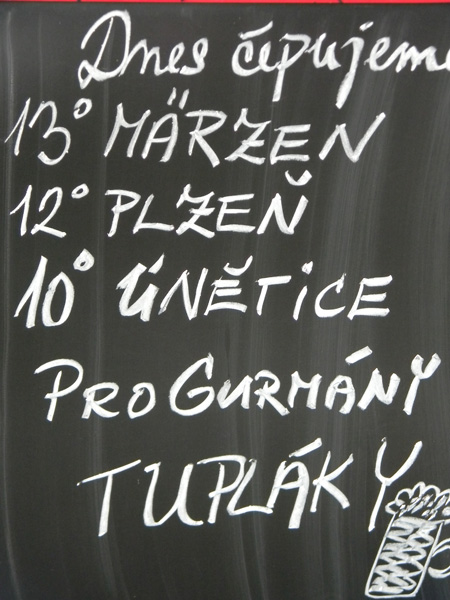 Dnes čepujeme
13° MÄRZEN
12° PLZEŇ
10° ÚNĚTICE
PRO GURMÁNY
TUPLÁKY